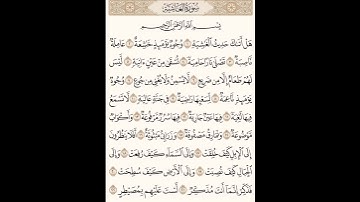 سُورَةُ الغَاشِيَةِ
بِسْمِ اللَّهِ الرَّحْمَٰنِ الرَّحِيمِ
هَلْ أَتَىٰكَ حَدِيثُ ٱلْغَٰشِيَةِ ۝ وُجُوهٌ يَوْمَئِذٍ خَٰشِعَةٌ ۝ عَامِلَةٌ
نَّاصِبَةٌ ۝ تَصْلَىٰ نَارًا حَامِيَةً ۝ تُسْقَىٰ مِنْ عَيْنٍ ءَانِيَةٍ ۝ لَّيْسَ
لَهُمْ طَعَامٌ إِلَّا مِن ضَرِيعٍ ۝ لَّا يُسْمِنُ وَلَا يُغْنِي مِن جُوعٍ ۝ وُجُوهٌ
يَوْمَئِذٍ نَّاعِمَةٌ ۝ لِّسَعْيِهَا رَاضِيَةٌ ۝ فِي جَنَّةٍ عَالِيَةٍ ۝ لَّا تَسْمَعُ
فِيهَا لَٰغِيَةً ۝ فِيهَا عَيْنٌ جَارِيَةٌ ۝ فِيهَا سُرُرٌ مَّرْفُوعَةٌ ۝ وَأَكْوَابٌ
مَّوْضُوعَةٌ ۝ وَنَمَارِقُ مَصْفُوفَةٌ ۝ وَزَرَابِيُّ مَبْثُوثَةٌ ۝ أَفَلَا يَنظُرُونَ
إِلَى ٱلْإِبِلِ كَيْفَ خُلِقَتْ ۝ وَإِلَى ٱلسَّمَآءِ كَيْفَ رُفِعَتْ ۝ وَإِلَى
ٱلْجِبَالِ كَيْفَ نُصِبَتْ ۝ وَإِلَى ٱلْأَرْضِ كَيْفَ سُطِحَتْ ۝
فَذَكِّرْ إِنَّمَآ أَنتَ مُذَكِّرٌ ۝ لَّسْتَ عَلَيْهِم بِمُصَيْطِرٍ ۝